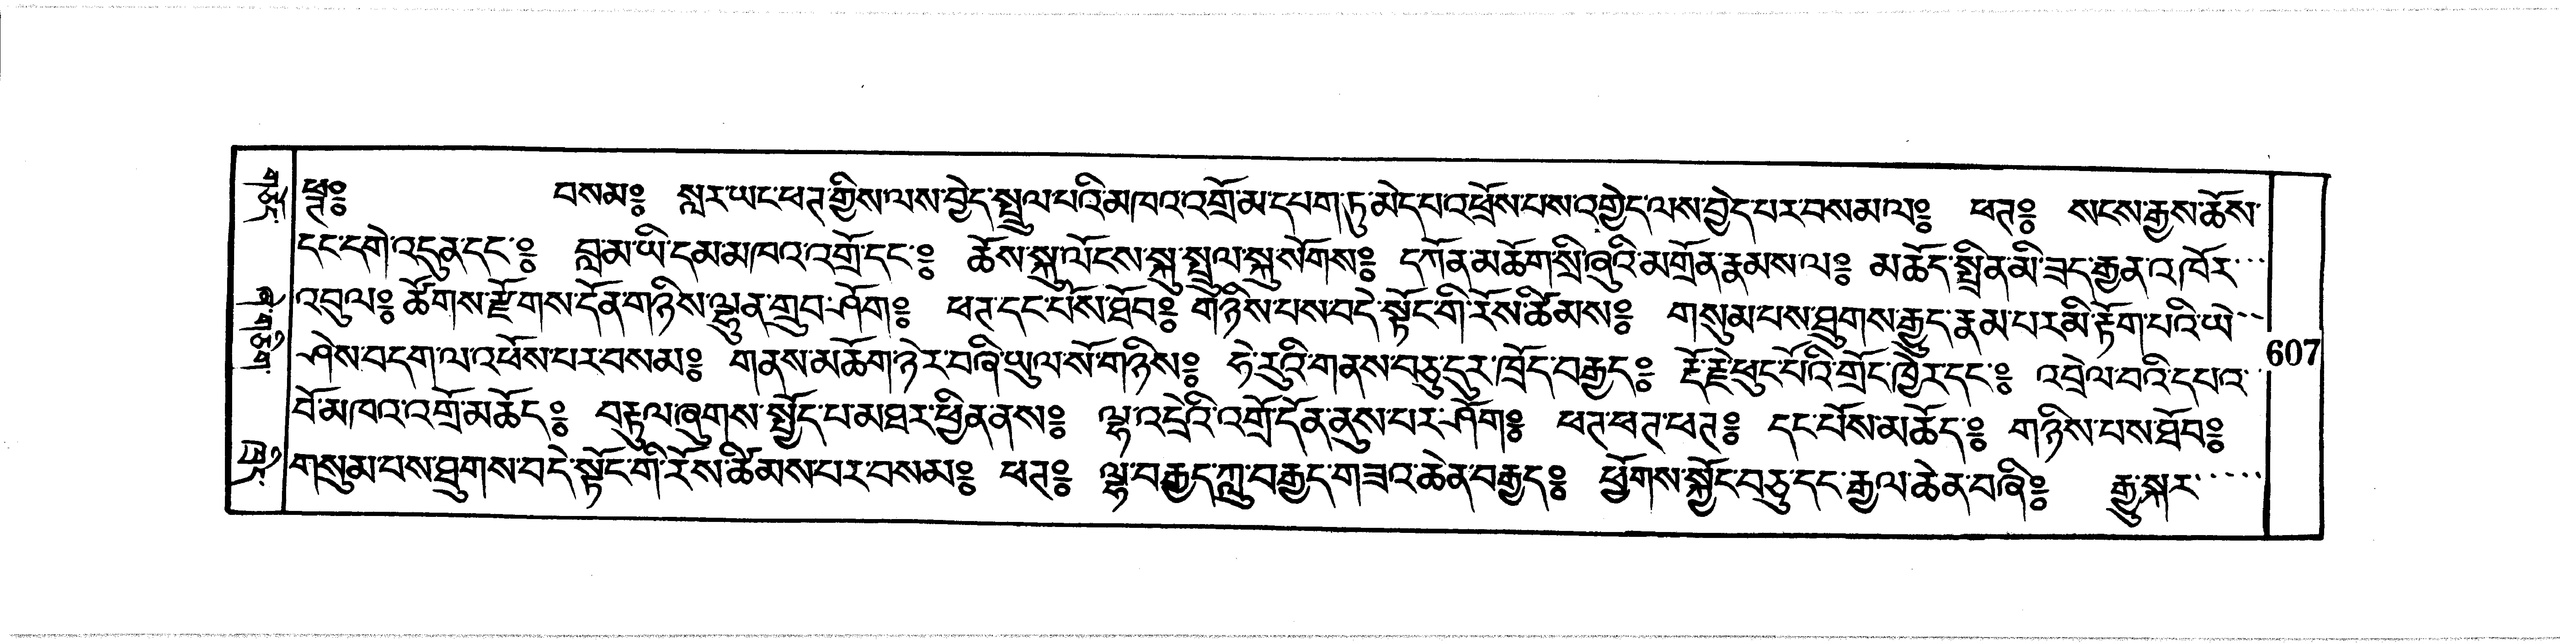 ཕཊ༔ བསམ༔ སླར་ཡང་ཕཊ་གྱིས་ལས་བྱེད་སྤྲུལ་པའི་མཁའ་འགྲོ་མ་དཔག་ཏུ་མེད་པ་འཕྲོས་པས་འགྱེད་ལས་བྱེད་པར་བསམ་ལ༔ ཕཊ༔ སངས་རྒྱས་ཆོས་
དང་དགེ་འདུན་དང་༔ བླ་མ་ཡི་དམ་མཁའ་འགྲོ་དང་༔ ཆོས་སྐུ་ལོངས་སྐུ་སྤྲུལ་སྐུ་སོགས༔ དཀོན་མཆོག་སྲི་ཞུའི་མགྲོན་རྣམས་ལ༔ མཆོད་སྤྲིན་མི་ཟད་རྒྱན་འཁོར་
འབུལ༔ ཚོགས་རྫོགས་དོན་གཉིས་ལྷུན་གྲུབ་ཤོག༔ ཕཊ་དང་པོས་ཐོབ༔ གཉིས་པས་བདེ་སྟོང་གི་རོས་ཚིམས༔ གསུམ་པས་ཐུགས་རྒྱུད་རྣམ་པར་མི་རྟོག་པའི་ཡེ་
ཤེས་བདག་ལ་འཕོས་པར་བསམ༔ གནས་མཆོག་ཉེར་བཞི་ཡུལ་སོ་གཉིས༔ ཧེ་རུའི་གནས་བཅུ་དུར་ཁྲོད་བརྒྱད༔ རྡོ་རྗེ་ཕུང་པོའི་གྲོང་ཁྱེར་དང་༔ འབྲེལ་བའི་དཔའ་
བོ་མཁའ་འགྲོ་མཆོད༔ བརྟུལ་ཞུགས་སྤྱོད་པ་མཐར་ཕྱིན་ནས༔ ལྷ་འདྲེའི་འགྲོ་དོན་ནུས་པར་ཤོག༔ ཕཊ་ཕཊ་ཕཊ༔ དང་པོས་མཆོད་༔ གཉིས་པས་ཐོབ༔
གསུམ་པས་ཐུགས་བདེ་སྟོང་གི་རོས་ཚིམས་པར་བསམ༔ ཕཊ༔ ལྷ་བརྒྱད་ཀླུ་བརྒྱད་གཟའ་ཆེན་བརྒྱད༔ ཕྱོགས་སྐྱོང་བཅུ་དང་རྒྱལ་ཆེན་བཞི༔ རྒྱུ་སྐར་
607